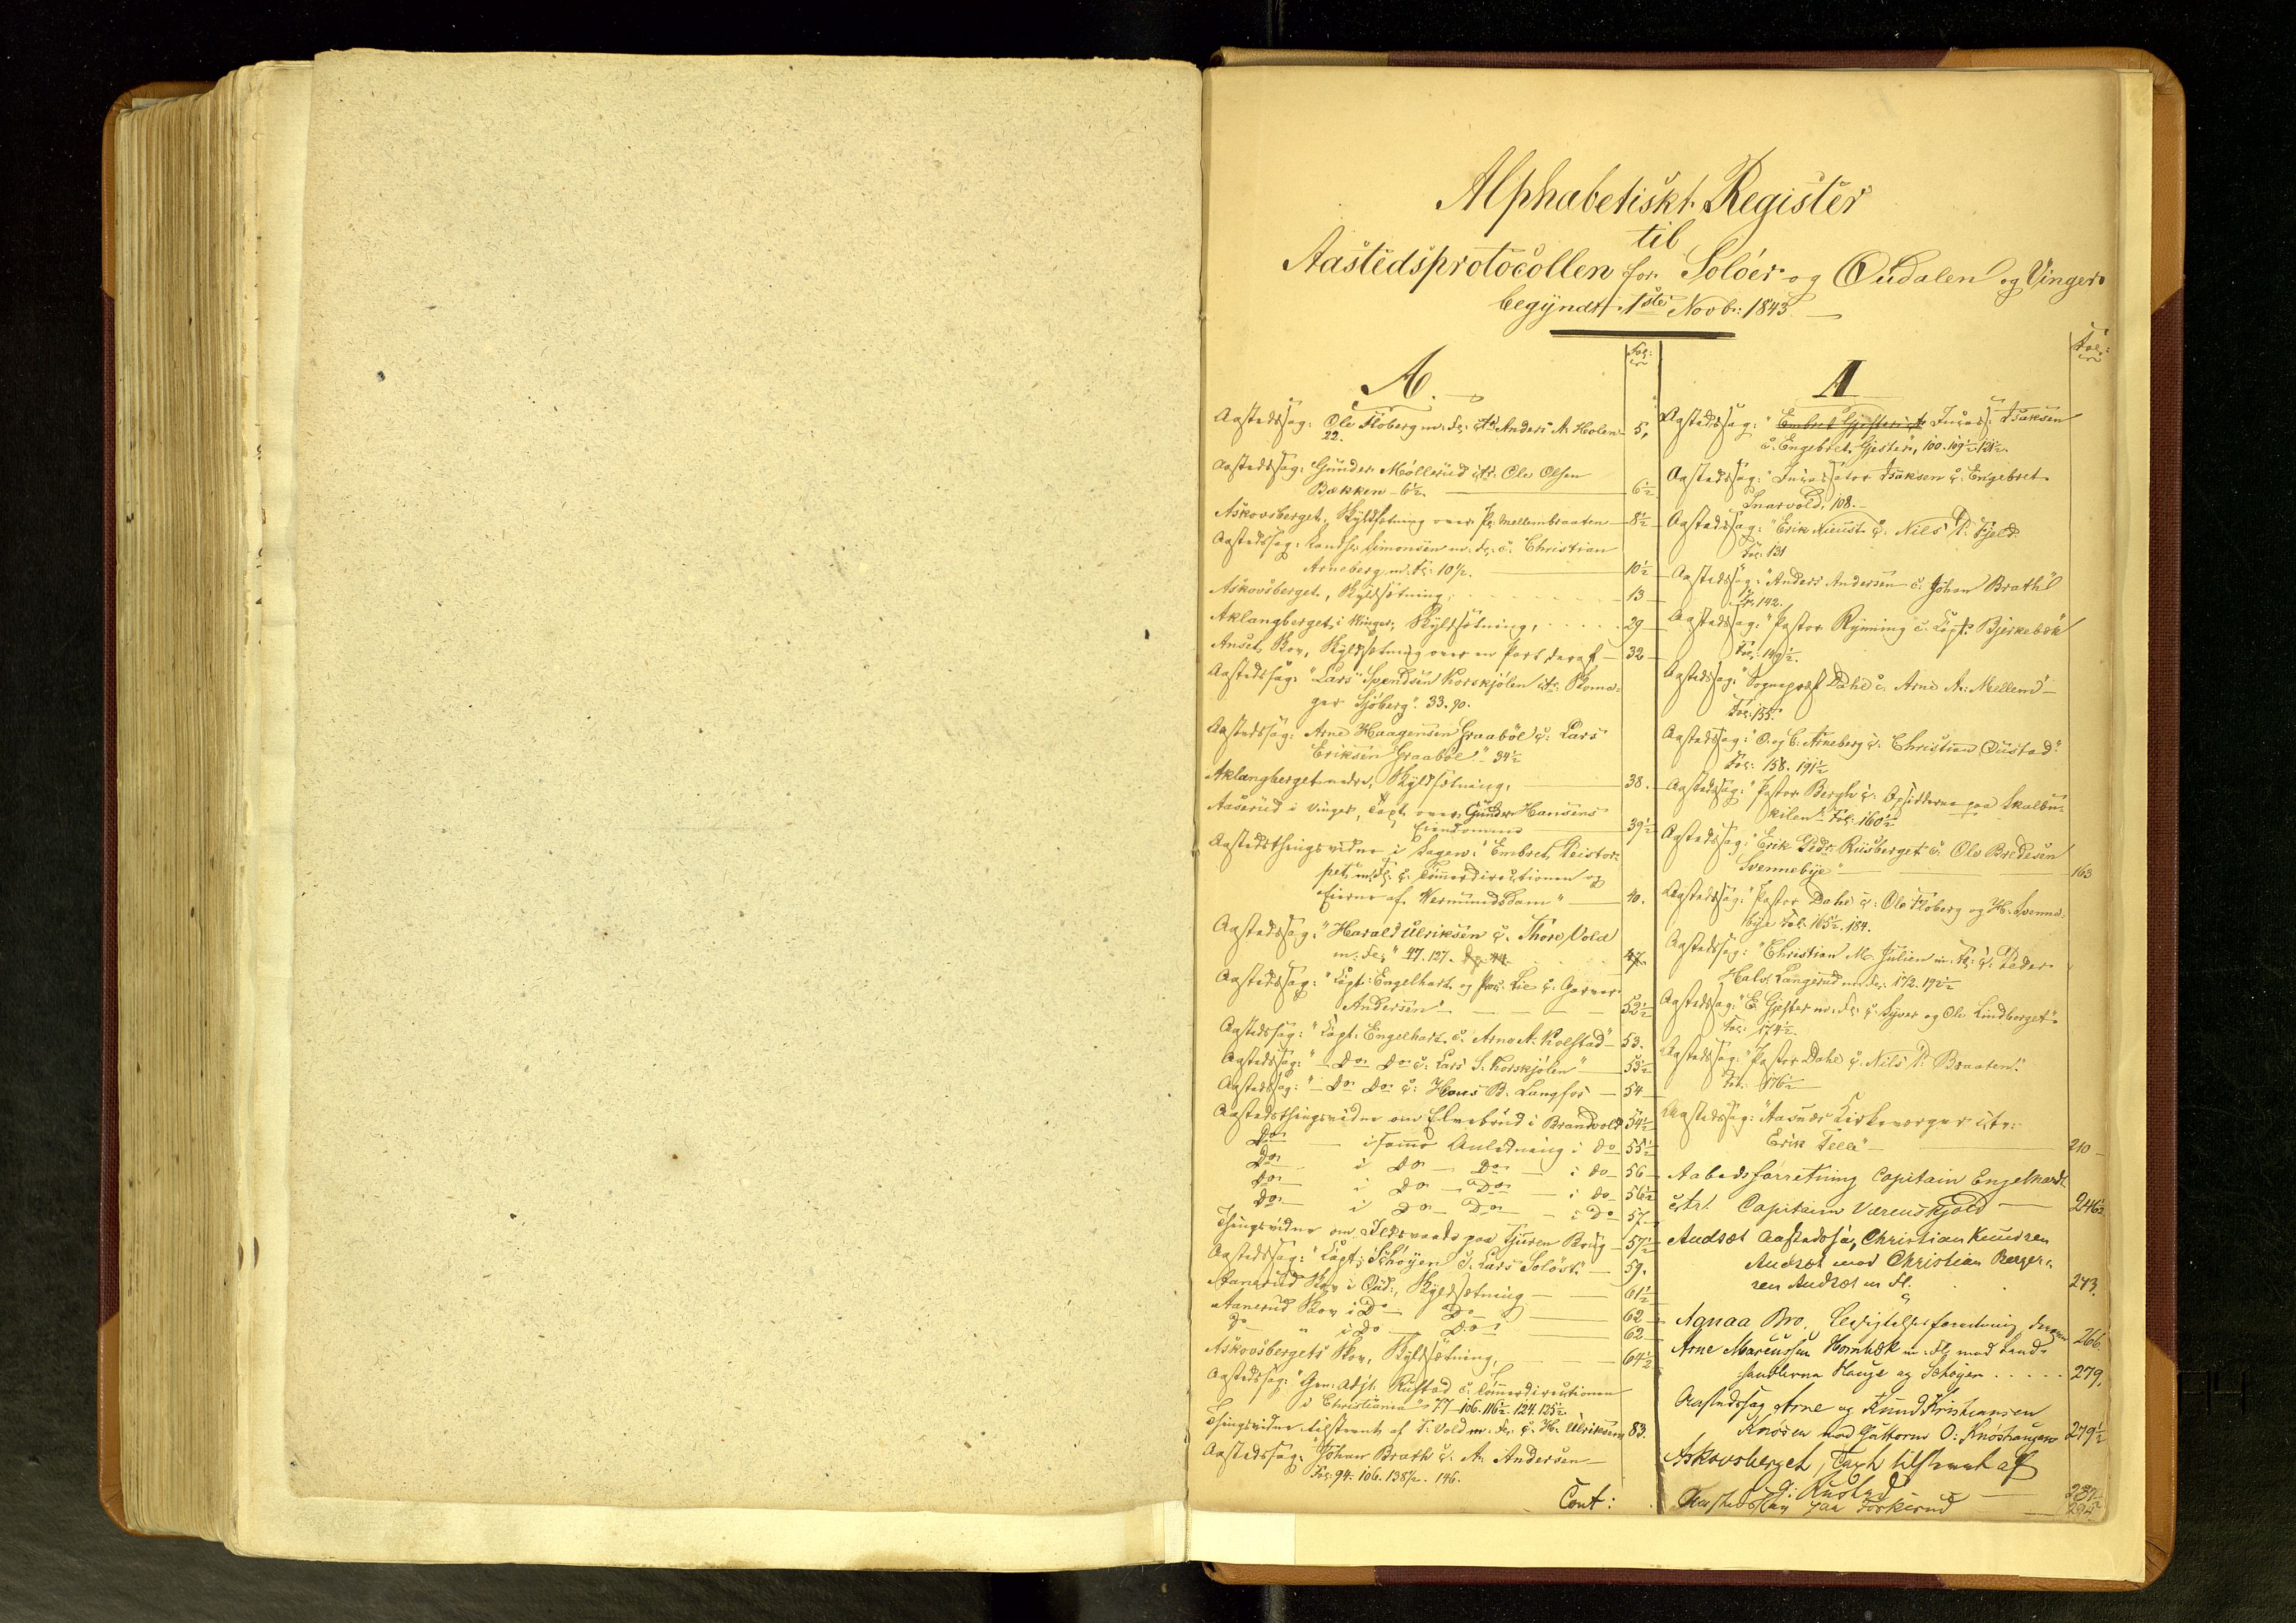 Alphabetiskt Register
til
Aastedsprotocollen for Solöer og Oudalen og Vinger
begyndt 1ste Novb: 1843
Fol:
A.
Aastedssag: Ole Floberg m: Fl: ctr Anders A. Holen 5,
22.
Aastedssag: Gunder Möllerud ctr. Ole Olsen
Bækken - 6½. 6½
Askovsberget, Skyldsætning over Pl: Mellembraaten 8½
Aastedssag: Simonsen m. Fl: c: Christian
Arneberg m. Fl: 10½. 10½
Askovsberget, Skyldsætning, 13
Aklangberget i Vinger, Skyldsætning, 29
Anset Skov, Skyldsætning over en Part deraf 32
Aastedssag: "Lars Svendsen Korskjölen ctr:
Sjöberg". 33. 90.
Aastedssag: Arne Haagensen Graaböl c: Lars
Eriksen Graaböl" 34½
Aklangberget nedre, Skyldsætning, 38.
Aaserud i Vinger, Taxt over Gunder Hansens
Eiendomme 39½
Aastedsthingsvidne i Sagen: "Embret
m. Fl: c: Tömmerdirectionen og
Eierne af Vermundsdam" 40.
Aastedssag: "Harald Ulriksen c: Thore Vold
m: Fl:" 47. 127. 47.
Aastedssag: "Capt: Engelhart og Proc: Lie c: Garver
Andersen" 52½
Aastedssag: "Capt: Engelhart c: Arne A: Kolstad" 53.
Aastedssag: " Do Do c: Lars S. Korskjölen" 53½
Aastedssag: " Do Do c: Hans B. Langfos 54
Aastedsthingsvidne om Elvebrud i Brandvold 54½
Do i samme Anledning i do 55½
Do i Do Do i do 56
Do i Do Do i do 56½
Do i Do Do i Do 57
Thingsvidne om Ildsvaade paa Tjuren Brug 57½
Aastedssag: "Capt: Schöyen c: Lars Solöst." 59.
Aanerud Skov i Oud:, Skyldsætning 61½
Aanerud Skov i Do Do 62
Do " i Do Do 62
Askovsbergets Skov, Skyldsætning, 64½
Aastedssag: "Gen: Adjt. Rustad c: Tömmerdirectionen
i Christiania" 77 106. 116½. 124. 125½.
Thingsvidne tilstævnt af T. Vold m: Fl: c: H. Ulriksen 83.
Aastedssag: "Johan Brath c: A. Andersen
Fol: 94. 106. 138½. 146.
Cont:
Fol:
A
Aastedssag: " Isaksen
c: Engebret Gjester", 100. 109½. 121½.
Aastedssag: " Isaksen c: Engebret
Snarvold, 108.
Aastedssag: "Erik c: Nils P: Fjeld
Fol: 131
Aastedssag: "Anders Andersen c: Johan Brath"
Fol: 142.
Aastedssag: "Pastor Ryming c: Capt: Bjerkebæk"
Fol: 149½.
Aastedssag: "Sognepræst Dahl c: Arne A: Mellem"
Fol: 155.
Aastedssag: "O. og C. Arneberg c: Christian Oustad"
Fol: 158. 191½
Aastedssag: "Pastor Bergh c: Opsidderne paa Skalbu-
kilen" Fol: 160½
Aastedssag: "Erik Peders: Riisberget c: Ole Bredesen
Svennebye" 163
Aastedssag: "Pastor Dahl c: Ole Floberg og H. Svenne-
bye Fol: 165½. 184.
Aastedssag: "Christian M. Julien m. Fl: c: Peder
Halv: Langerud m. Fl: 172. 192½
Aastedssag: "E. Gjester m. Fl: c: Syver og Ole Lindberget"
Fol: 174½.
Aastedssag: "Pastor Dahl c: Nils P: Braaten"
Fol: 176½
Aastedssag: "Aasnes Kirkeværger ctr:
Erik Telle" 210
Aabodsforretning Capitain Engelhardt
ctr. Capitain Værenskjold 246½
Audsæt Aastedssag, Christian Knudsen
Audsæt mod Christian Berger-
sen Audsæt m Fl. 273.
Agnaa Bro, Besigtelsesforretning derover 266.
Arne Marcussen Hornbæk m. Fl. mod Land-
handlerne Hauge og Schøyen 279.
Aastedssag Arne og Knud Kristiansen
Knösen mod Guttorm O: Knöshaugen 279½
Askovsberget, Taxt tilstævnt af
G: Rustad 287½
Aastedssag paa Foskerud 294